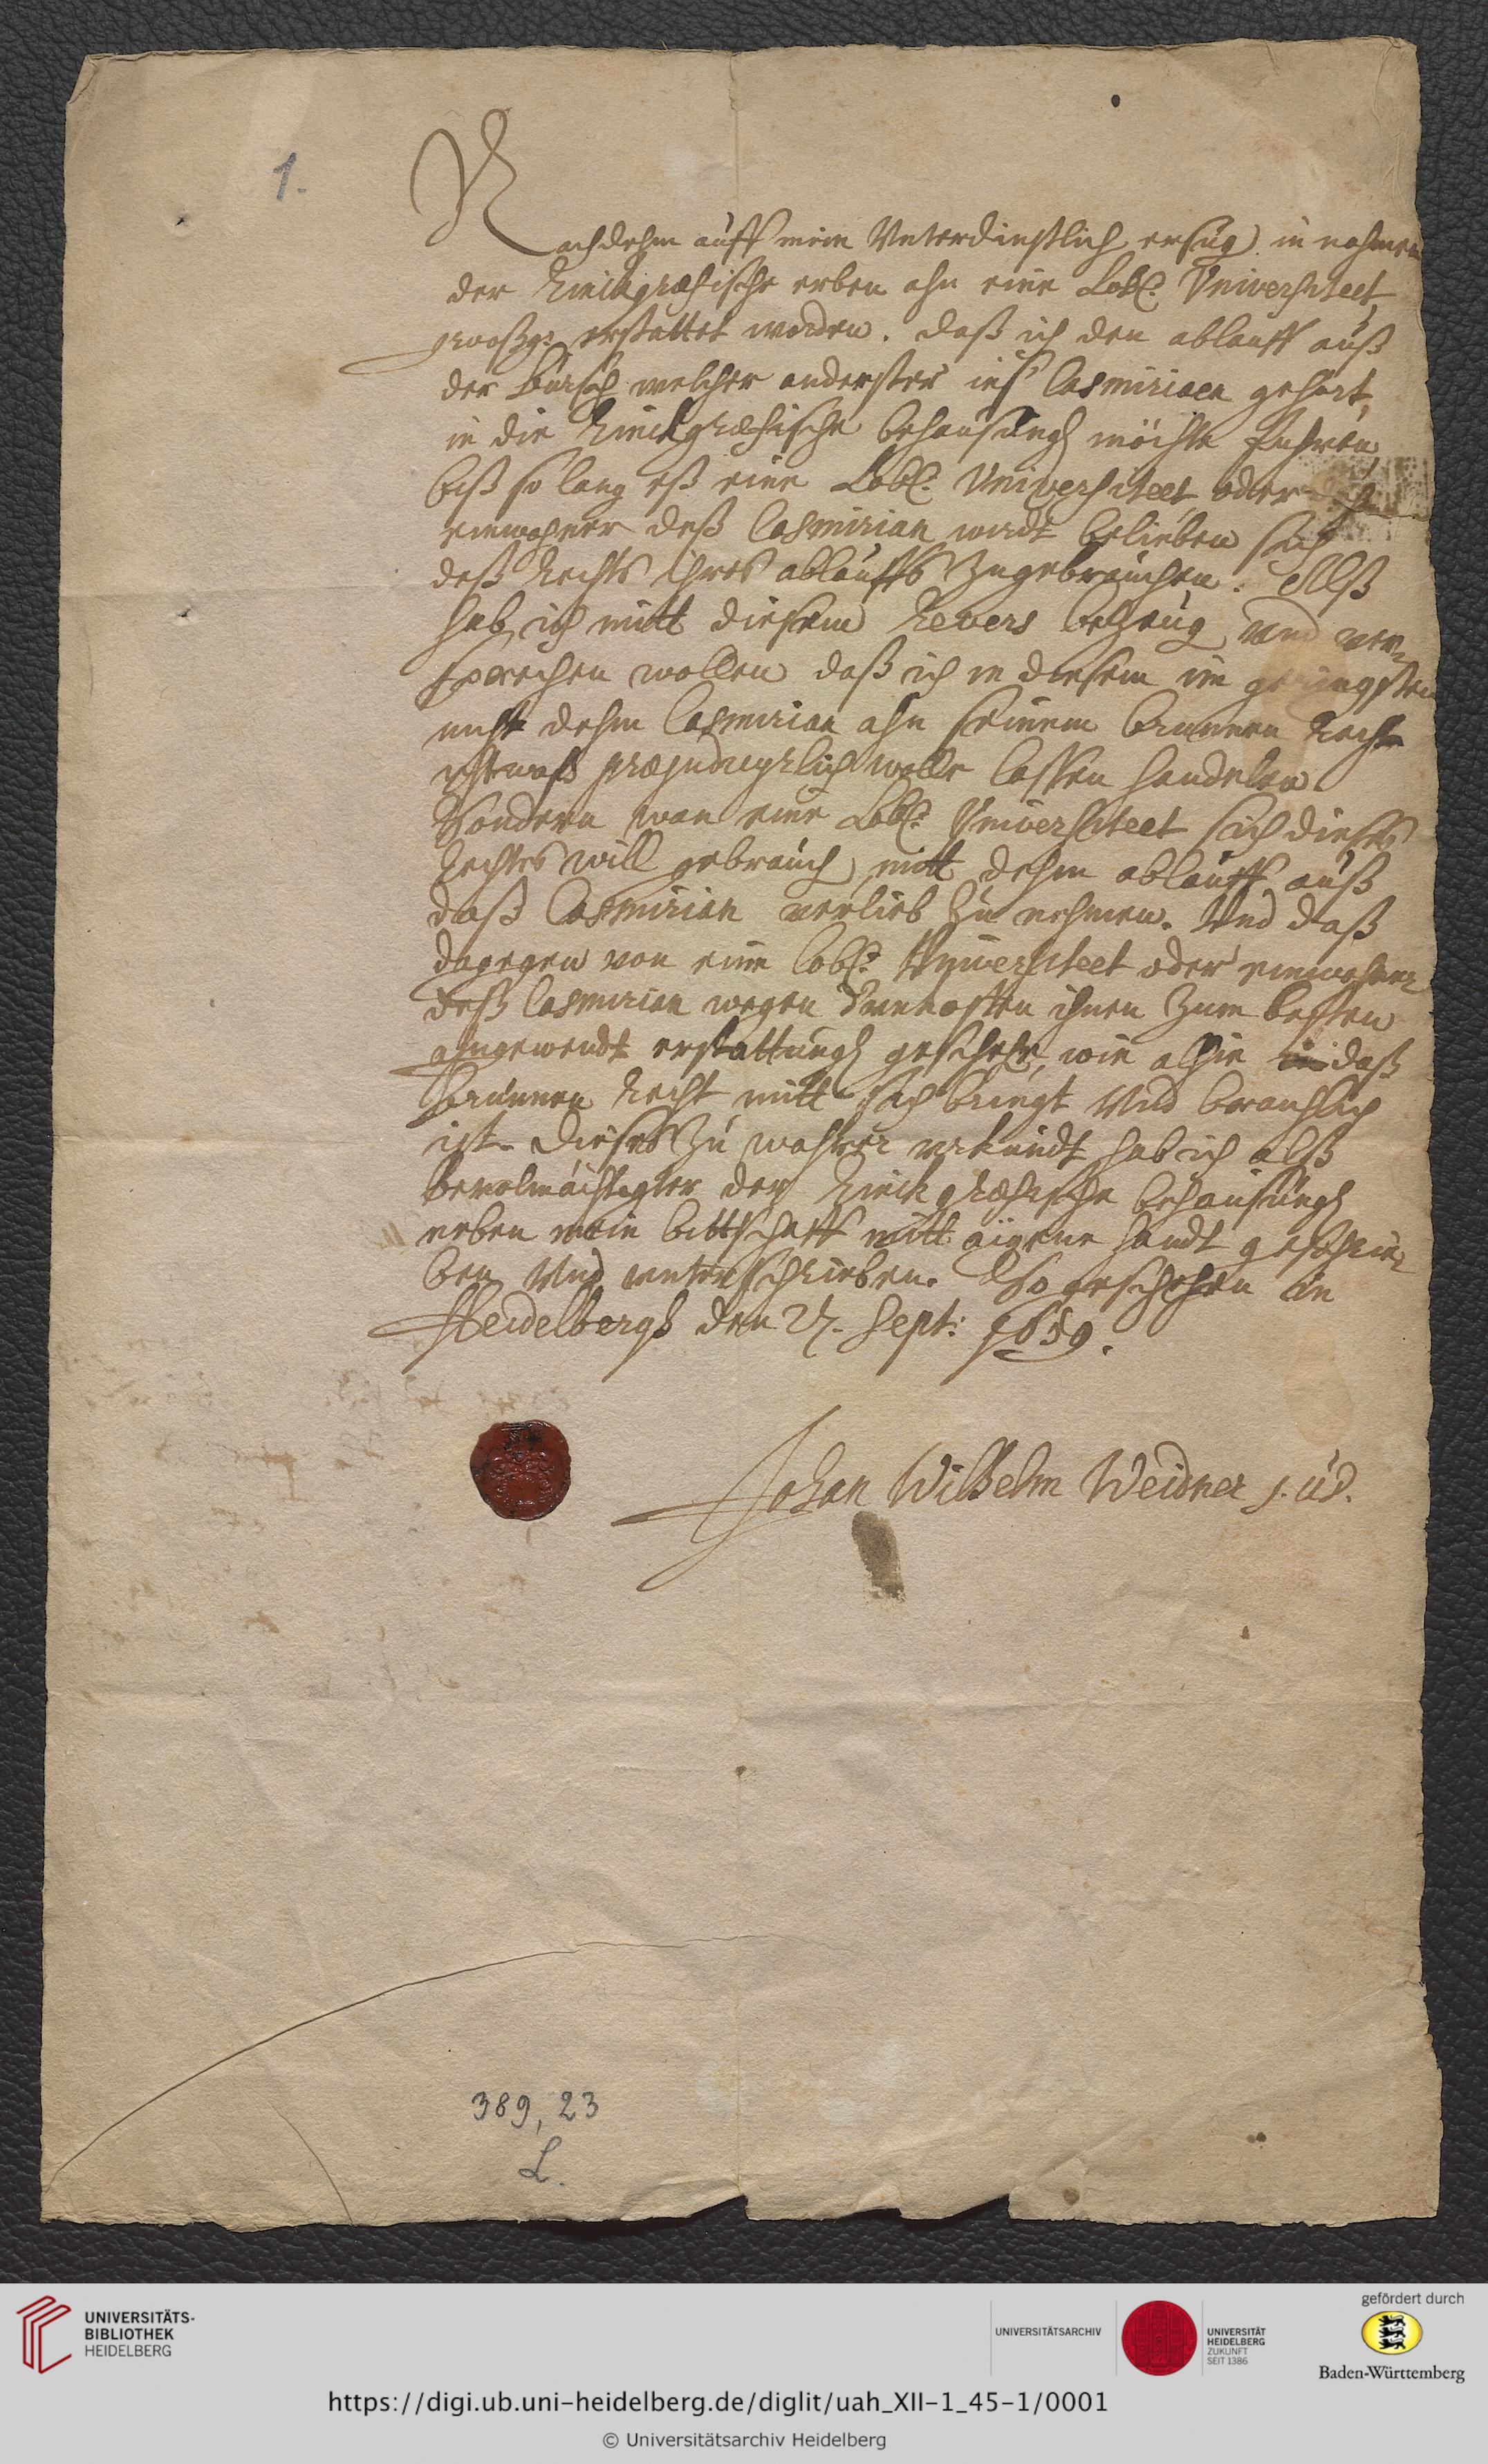 1.
Nachdehm auff mein Unterdienstlich ersuch in nahmen
der Zinckgræfische erben ahn eine Löbl. Universiteet
erstattet worden. daß ich den ablauff auß
der Bursch welcher anderster ins Casmirian gehört,
in die Zinckgræfische behausungh möchte führen
biß so lang eß eine Löbl. Universiteet oder
einwohner deß Casmirian wirdt belieben sich
deß Rechts ihres ablauffs zugebrauchen. Alß
hab ich mitt diesem Revers bezeug und ver-
sprechen wollen daß ich in diesem im geringsten
nicht dehm Casmirian ahn seinem brunnen Recht
etwaß præjudicyrlich wolle lassen handelen
Sondern wan eine Löbl. Universiteet sich dieses
Rechtes will gebrauch mitt dehm ablauff auß
daß Casmirian verlieb zu nehmen. Und daß
dagegen von eine löbl. Universiteet oder einwohner
deß Casmirian wegen unkosten ihnen zum besten
angewendt erstattungh geschehe, wie alhie daß
brunnen Recht mitt sich bringt Und brauchlich
ist. Dieses zu wahrer urkundt hab ich alß
bevolmächtigter der Zinckgræfische behausungh
neben mein bittschafft mitt aigene handt geschrie-
ben Und unterschrieben. So geschehen in
Heidelbergh den 27. Sept: 1659.
Johan Wilhelm Weidner
389, 23
L.
UNIVERSITÄTS-
BIBLIOTHEK
HEIDELBERG
UNIVERSITÄTSARCHIV
UNIVERSITÄT
HEIDELBERG
ZUKUNFT
SEIT 1386
gefördert durch
Baden-Württemberg
https://digi.ub.uni-heidelberg.de/diglit/uah_XII-1_45-1/0001
© Universitätsarchiv Heidelberg